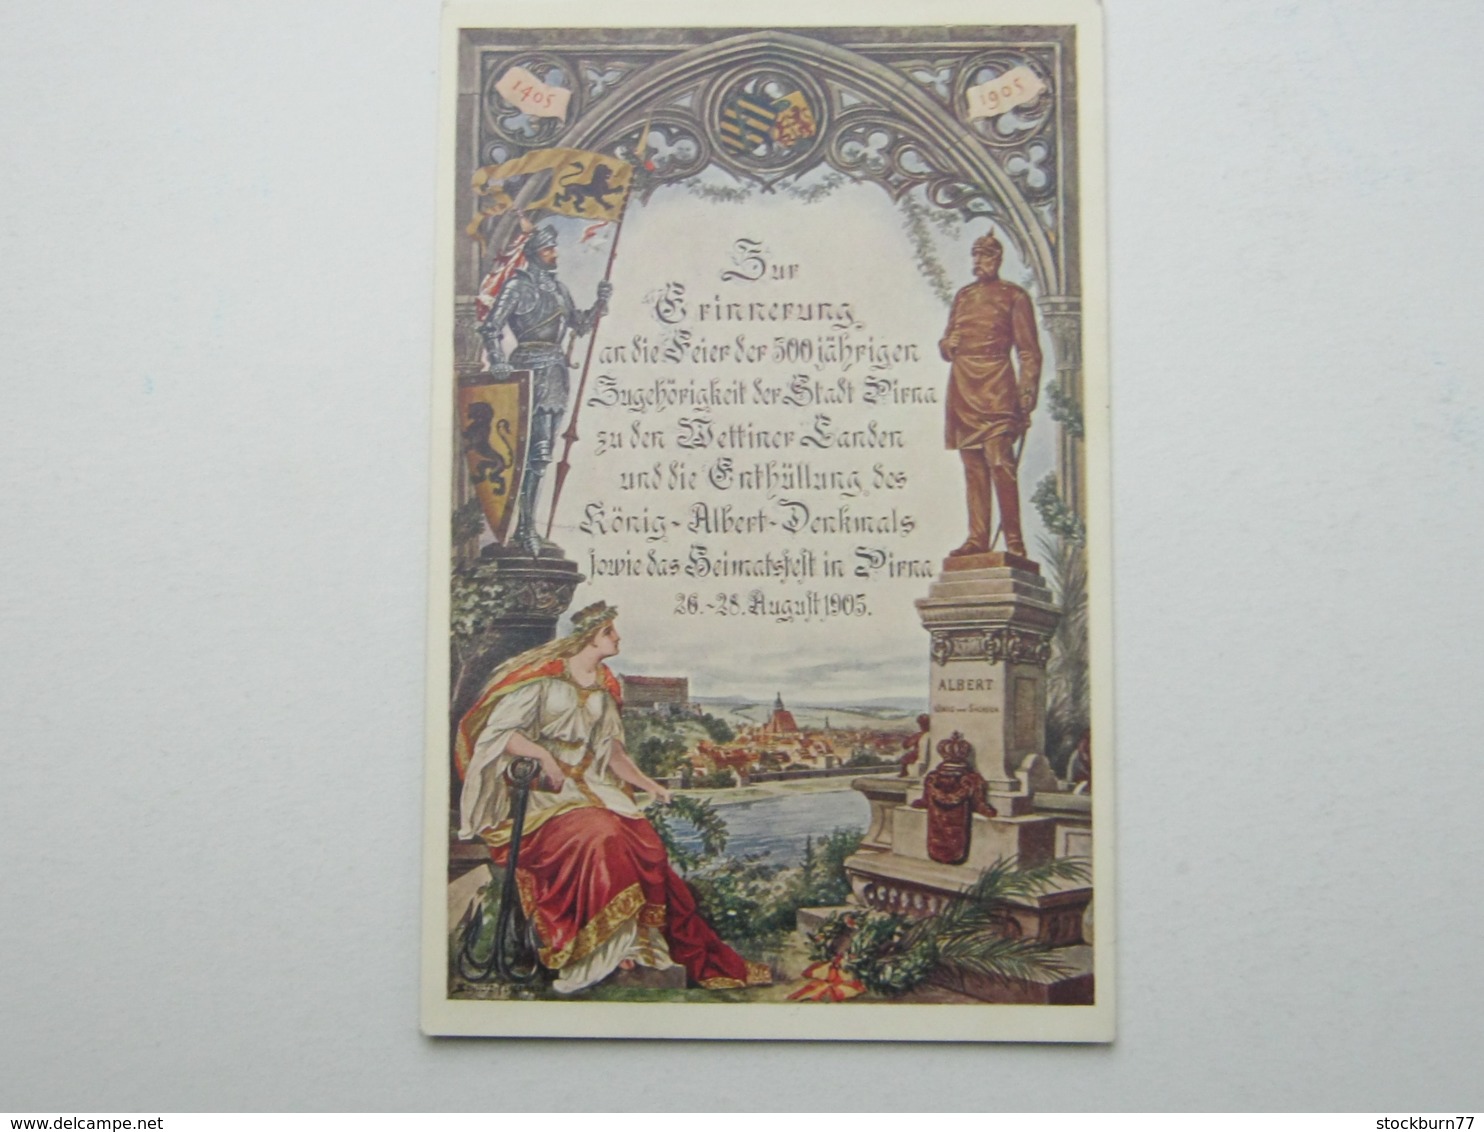 1405
1905
Zur
Erinnerung
an die Feier der 500 jährigen
Zugehörigkeit der Stadt Pirna
zu den Wettiner Landen
und die Enthüllung des
König-Albert-Denkmals
sowie das Heimatsfest in Pirna
26.-28. August 1905.
ALBERT
KÖNIG VON SACHSEN
© picclick-delcampe.net
stockburn77